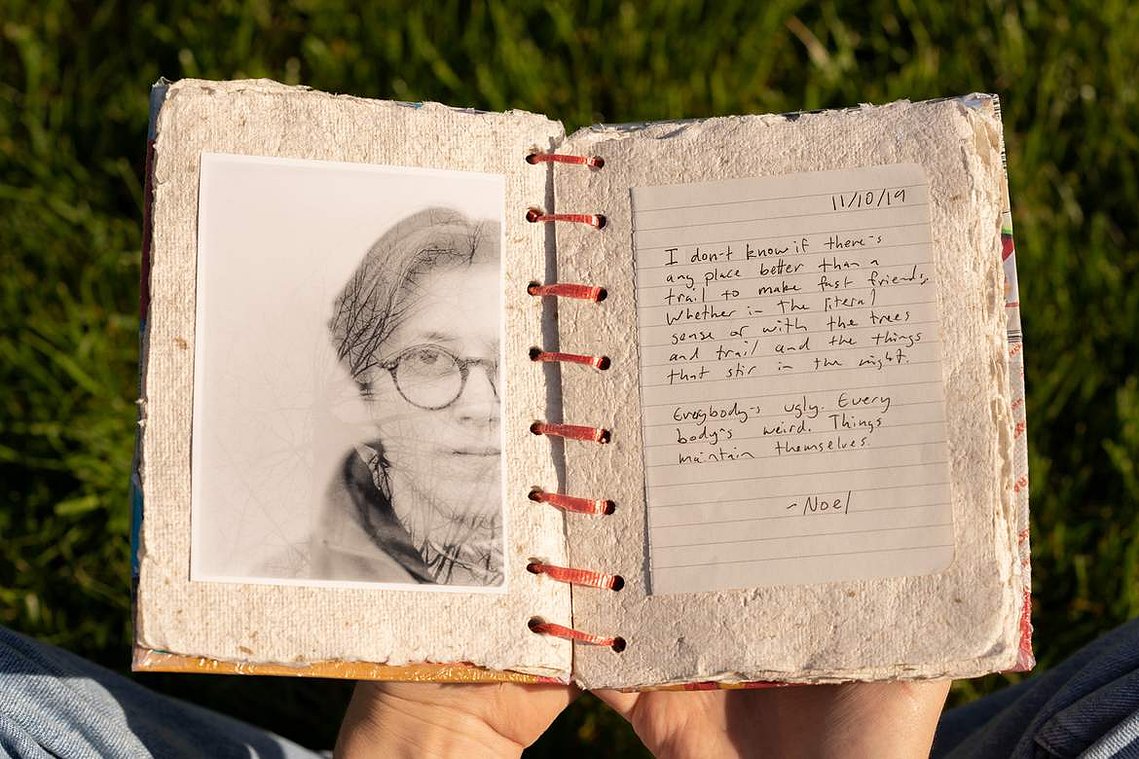 11/10/19
I don't know if there's
any place better than a
trail to make fast friends,
whether in the literal
sense or with the trees
and trail and the things
that stir in the night.
Everybody's ugly. Every
body's weird. Things
maintain themselves.
- Noel